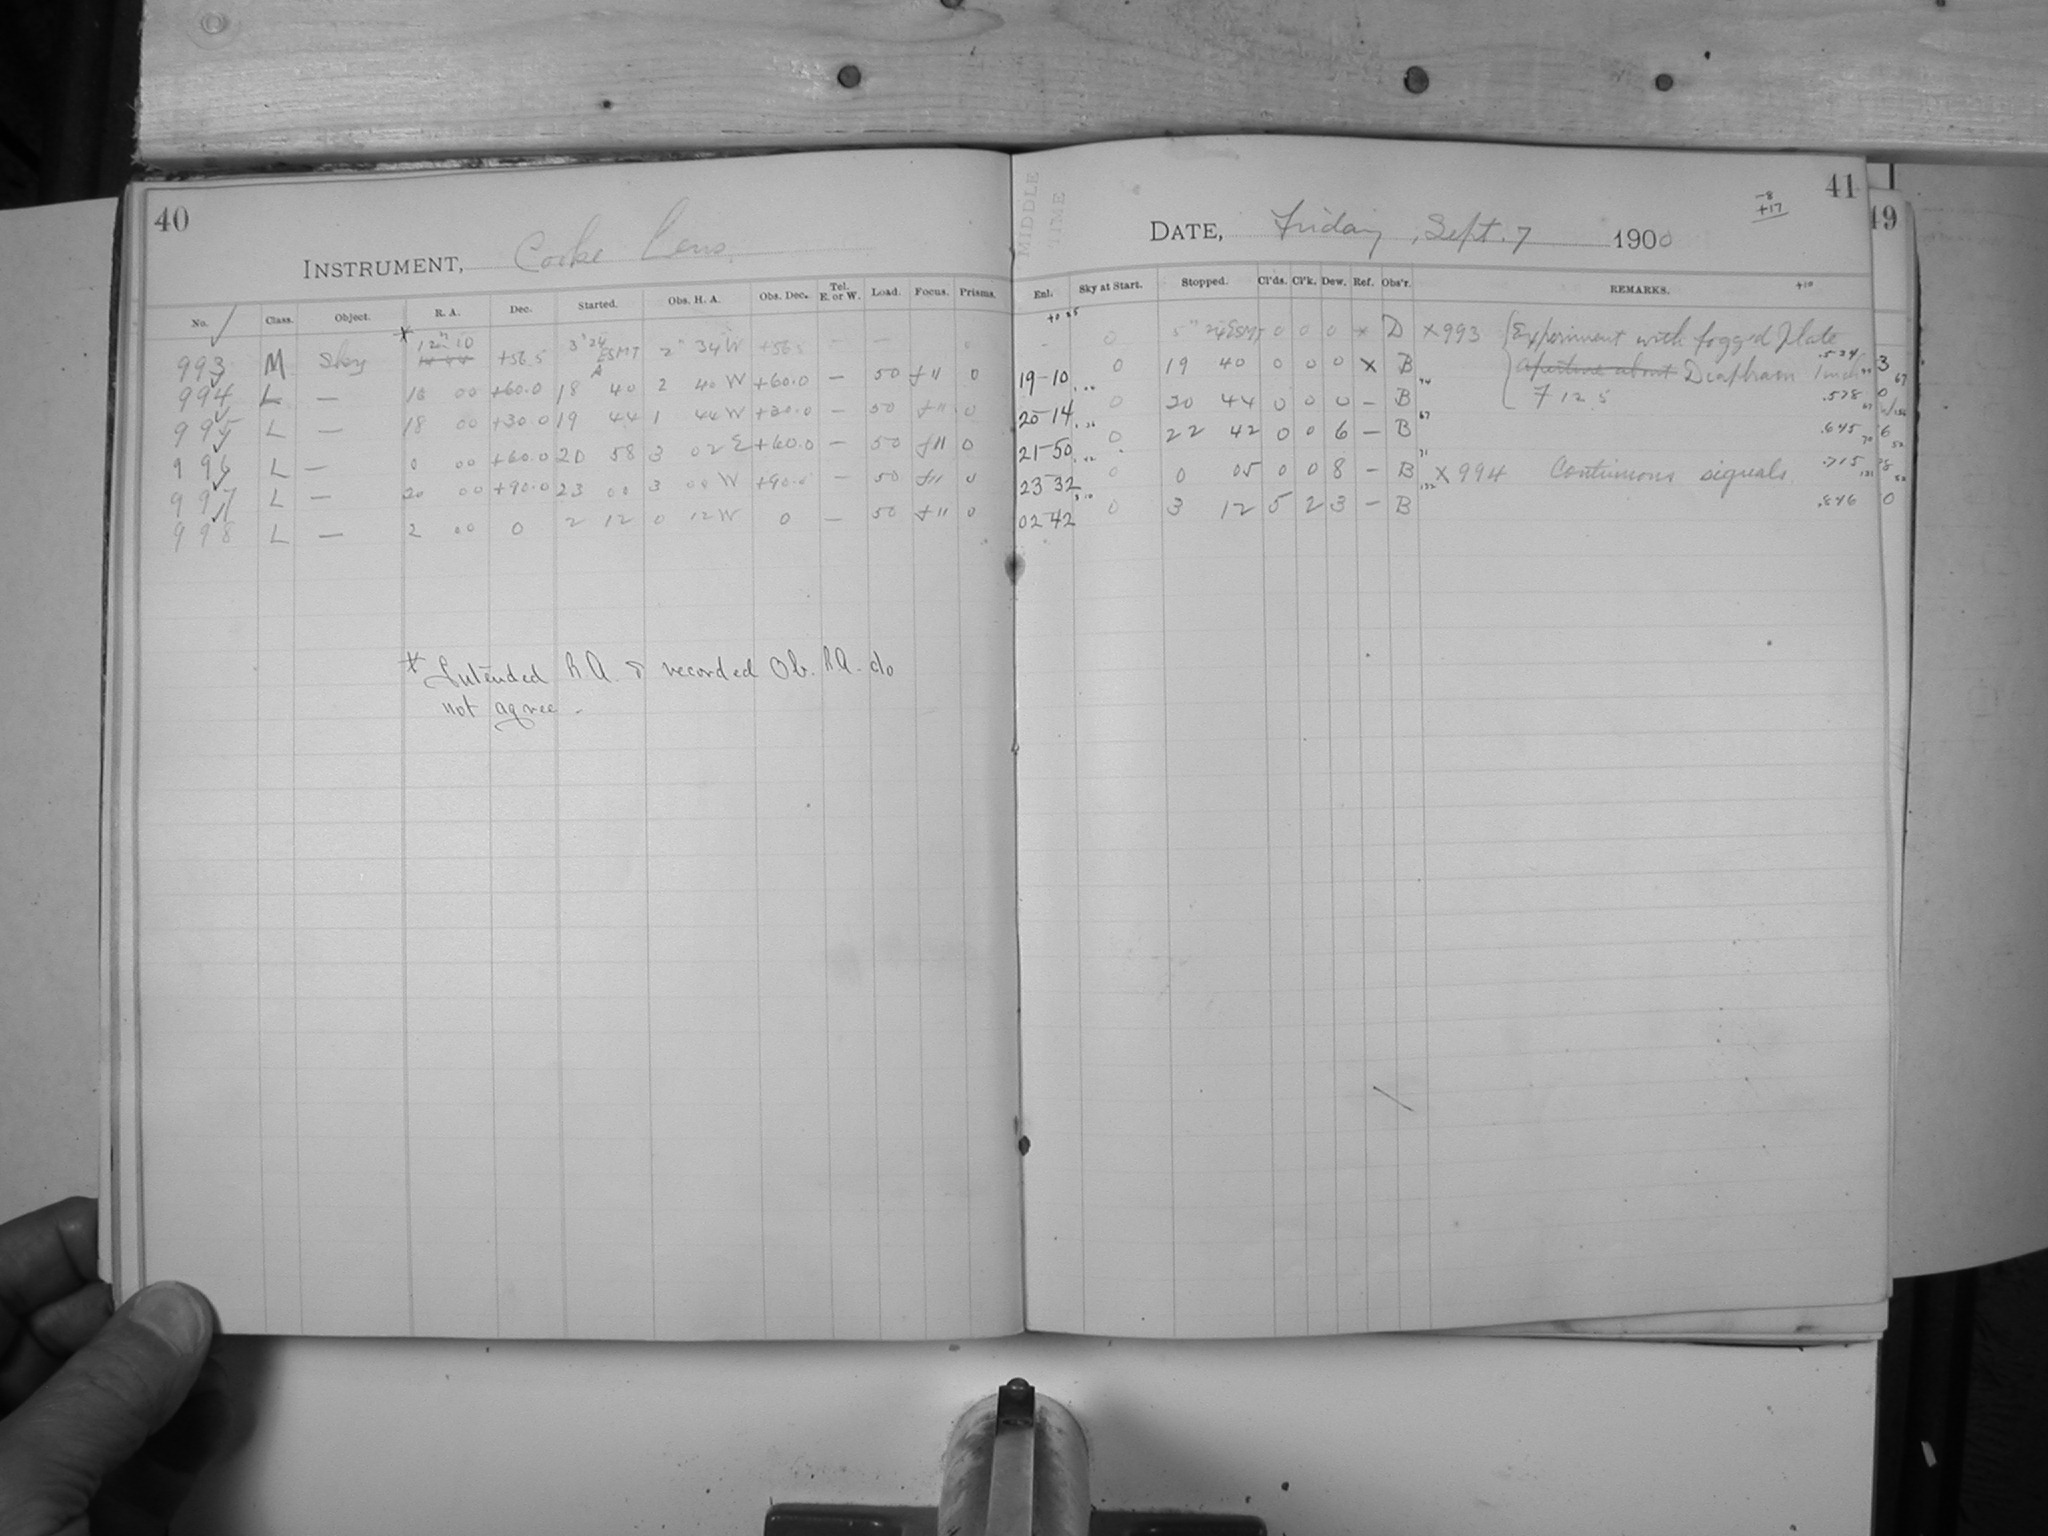 40
INSTRUMENT, Cooke Lens.
No. Class. Object. R. A. Dec. Started. Obs. H. A. Obs. Dec. Tel. E. or W. Load. Focus. Prisms.
993 M Sky 12 10 +56.5 3 24 ESMT 2 34 W +56.5 — — 0
994 L — 16 00 +60.0 18 40 2 40 W +60.0 — 50 f11 0
995 L — 18 00 +30.0 19 44 1 44 W +30.0 — 50 f11 0
996 L — 0 00 +60.0 20 58 3 02 E +60.0 — 50 f11 0
997 L — 20 00 +90.0 23 00 3 00 W +90.0 — 50 f11 0
998 L — 2 00 0 2 12 0 12 W 0 — 50 f11 0
* Intended R.A. & recorded Ob. R.A. do
not agree.
MIDDLE
TIME
41
-8
+17
DATE, Friday, Sept. 7 1900
49
Enl. Sky at Start. Stopped. Cl'ds. Cl'k. Dew. Ref. Obs'r. REMARKS. +10
- 0 5 24 ESMT 0 0 0 x D x993 Experiment with fogged Plate
19-10 0 19 40 0 0 0 x B aperture about Diaphram 1 inch .524 3
20-14 0 20 44 0 0 0 — B F 12.5 .578 0
21-50 0 22 42 0 0 6 — B .645 6
23-32 0 0 05 0 0 8 — B x994 Continuous signals. .715
02-42 0 3 12 5 2 3 — B .846 0